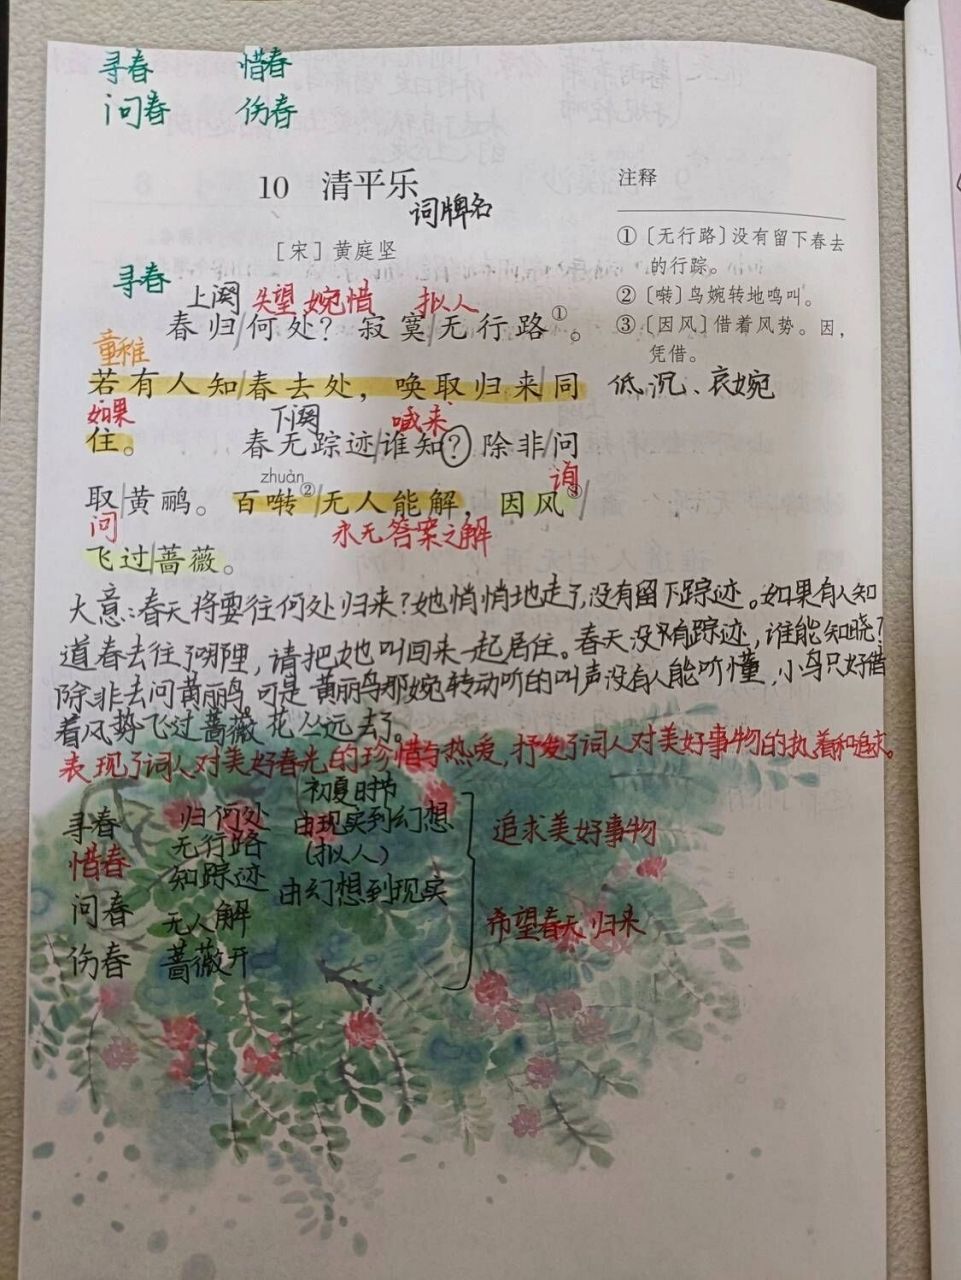 寻春 惜春
问春 伤春
10 清平乐
词牌名
[宋] 黄庭坚
寻春
上阕 失望 婉惜 拟人
春归/何处？寂寞/无行路①。
童稚
若有人知/春去处，唤取归来/同
如果 下阕 喊来
住。 春无踪迹/谁知？除非/问
zhuàn 询
取/黄鹂。百啭②/无人能解，因风③/
问 永无答案之解
飞过/蔷薇。
注释
①〔无行路〕没有留下春去
的行踪。
②〔啭〕鸟婉转地鸣叫。
③〔因风〕借着风势。因，
凭借。
低沉、哀婉
大意：春天将要往何处归来？她悄悄地走了，没有留下踪迹。如果有人知
道春去往了哪里，请把她叫回来一起居住。春天没有踪迹，谁能知晓？
除非去问黄丽鸟。可是黄丽鸟那婉转动听的叫声没有人能听懂，小鸟只好借
着风势飞过蔷薇花丛远去了。
表现了词人对美好春光的珍惜与热爱，抒发了词人对美好事物的执着和追求。
初夏时节
寻春 归何处 由现实到幻想
惜春 无行路 (拟人)
知踪迹 由幻想到现实
问春 无人解
伤春 蔷薇开
追求美好事物
希望春天归来